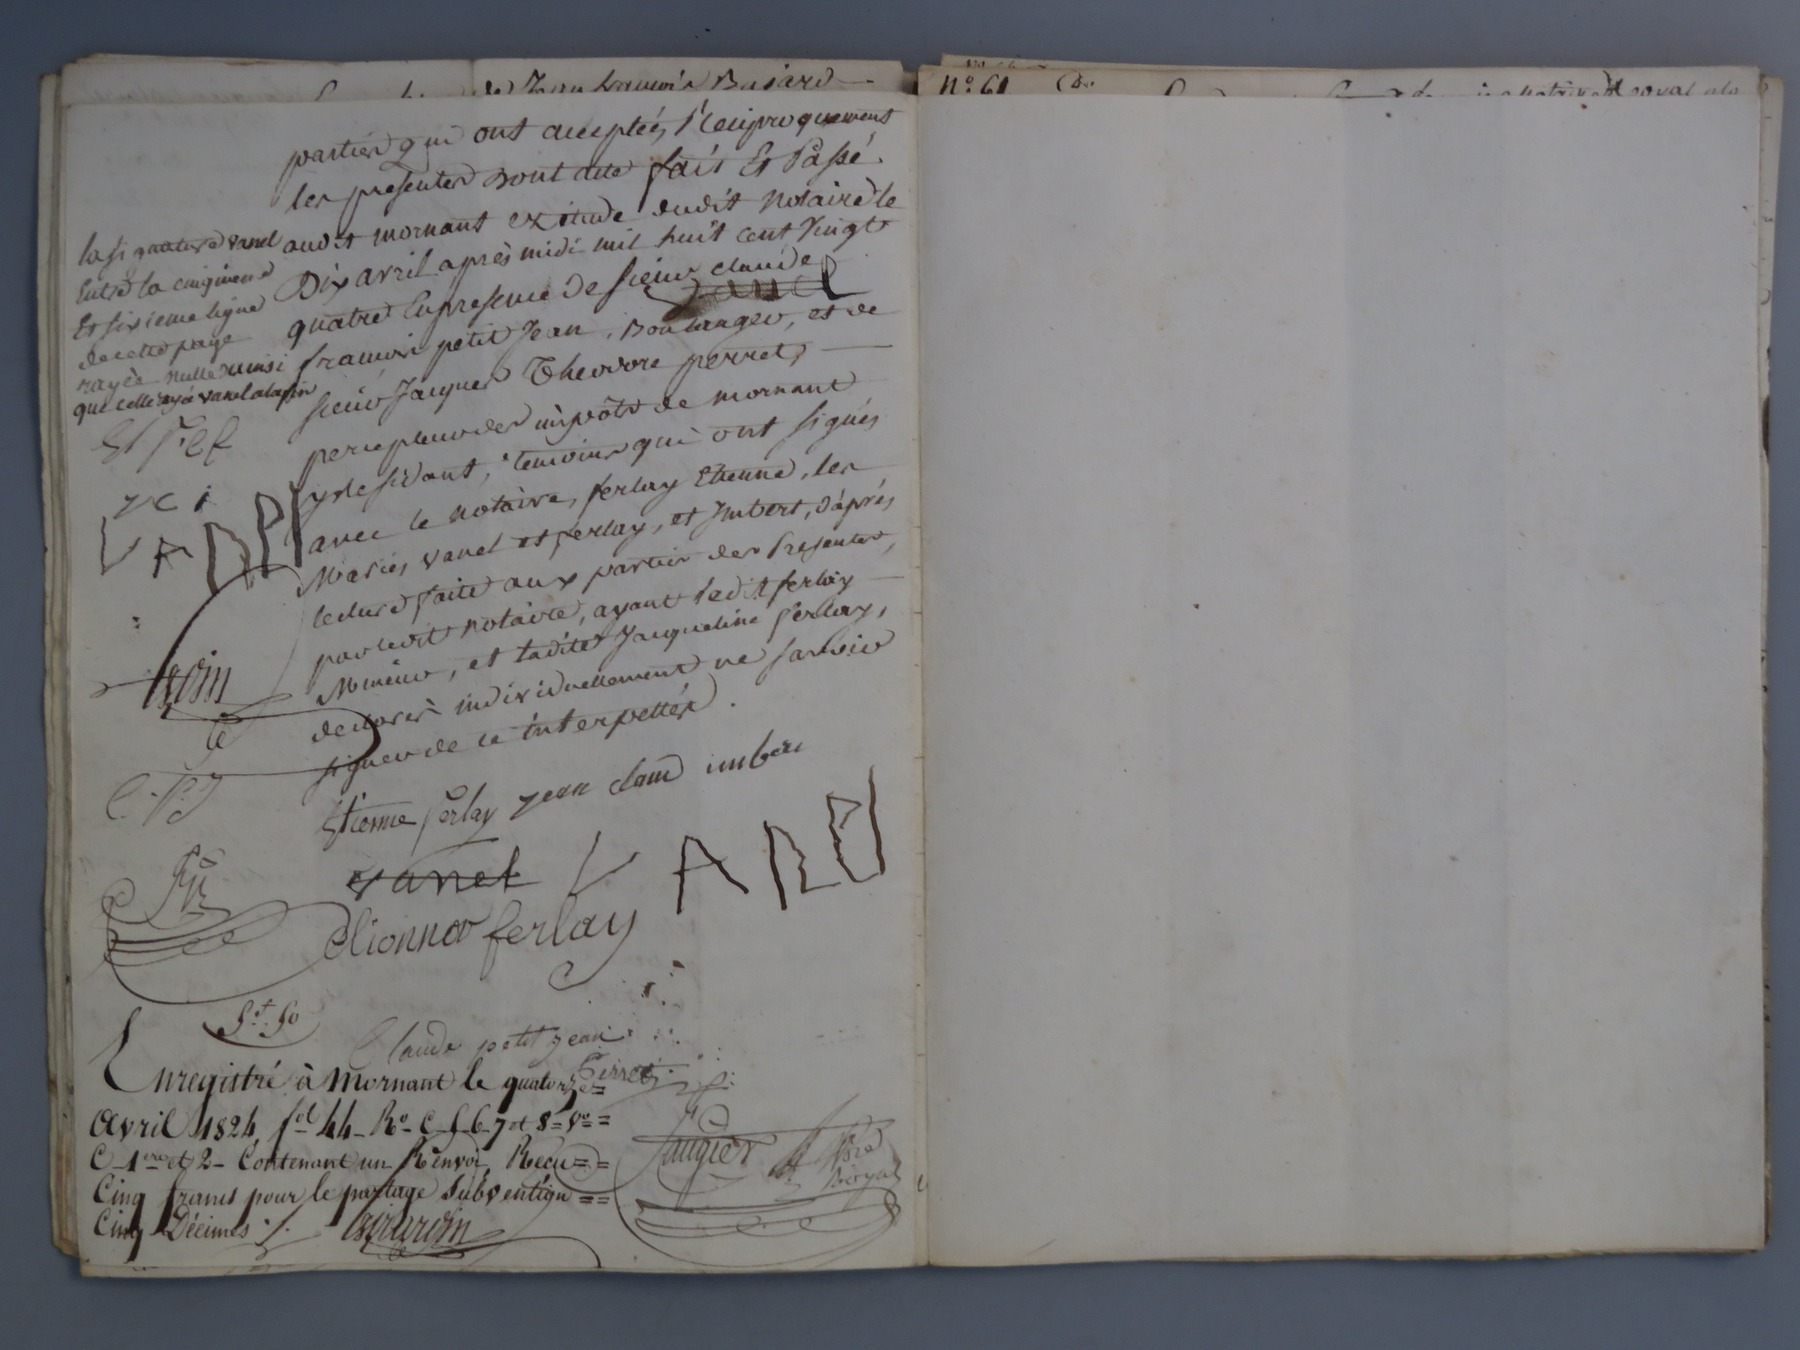 Jean francois Bajard
N.o 61
parties qui ont acceptées réciproquement
les presentes Dont acte fait Et Passé
audit mornant et étude dudit Notaire le
Dix avril après midi mil huit cent Vingt
quatre En presence de sieur claude
vanel
francois petit Jean, Boulanger, et de
sieur Jacques Theodore perret,
percepteur des impôts de mornant
y residant, temoins qui ont signés
avec le notaire, ferlay Etienne, les
Mariés vanel et ferlay, et Imbert, d'après
lecture faite aux parties des Presentes,
par ledit notaire, ayant ledit ferlay
Mineur, et ladite Jacqueline ferlay,
declarés individuellement ne savoir
signer de ce interpellés.
la signature vanel
Entre la cinquieme
Et sixieme ligne
de cette page
rayée nulle ainsi
que celle rayé vanel alafin
Et f.
j c i
VANEL
C. P. J
Etienne ferlay jean claud imber
vanel VANEL
ferlay
Claude petit jean
Perret
Enregistré à Mornant le quatorze
Avril 1824 f.ol 44 R.o C. 5. 6. 7 et 8 V.o
C. 1ere et 2 Contenant un Renvoi, Recu
Cinq francs pour le partage Subvention
Cinq Décimes ./.
Laugier
N.re
Royal